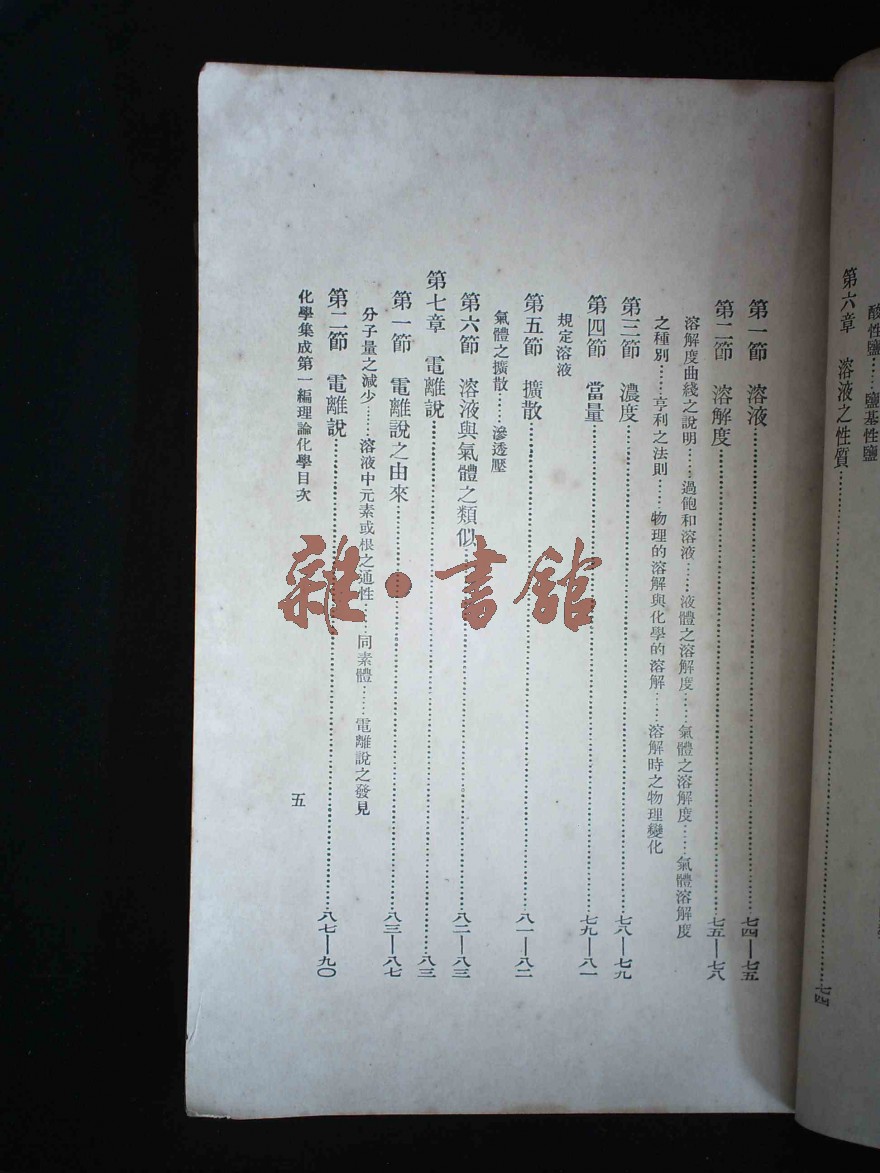 酸性鹽……鹽基性鹽
第六章　溶液之性質……七四
第一節　溶液……七四—七五
第二節　溶解度……七五—七八
溶解度曲綫之說明……過飽和溶液……液體之溶解度……氣體之溶解度……氣體溶解度
之種別……亨利之法則……物理的溶解與化學的溶解……溶解時之物理變化
第三節　濃度……七八—七九
第四節　當量……七九—八一
規定溶液
第五節　擴散……八一—八二
氣體之擴散……滲透壓
第六節　溶液與氣體之類似……八二—八三
第七章　電離說……八三
第一節　電離說之由來……八三—八七
分子量之減少……溶液中元素或根之通性……同素體……電離說之發見
第二節　電離說……八七—九〇
化學集成第一編理論化學目次
五
雜·書館